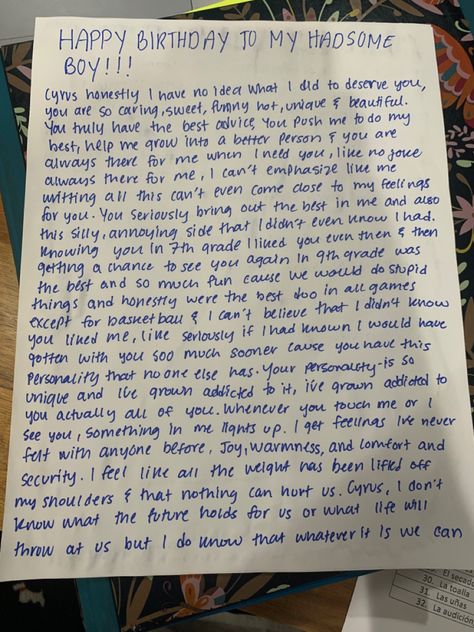 HAPPY BIRTHDAY TO MY HADSOME
BOY!!!
Cyrus honestly I have no idea what I did to deserve you,
you are so caring, sweet, funny hot, unique & beautiful.
You truly have the best advice, you push me to do my
best, help me grow into a better person & you are
always there for me when I need you, like no joke
always there for me, I can't emphasize like me
writting all this can't even come close to my feelings
for you. You seriously bring out the best in me and also
this silly, annoying side that I didn't even know I had.
Knowing you in 7th grade I liked you even then & then
getting a chance to see you again in 9th grade was
the best and so much fun cause we would do stupid
things and honestly were the best duo in all games
except for basketball & I can't believe that I didn't know
you liked me, like seriously if I had known I would have
gotten with you soo much sooner cause you have this
personality that no one else has. Your personality is so
unique and I've grown addicted to it, ive grown addicted to
you actually all of you. Whenever you touch me or I
see you, something in me lights up. I get feelings ive never
felt with anyone before, Joy, warmness, and comfort and
security. I feel like all the weight has been lifted off
my shoulders & that nothing can hurt us. Cyrus, I don't
know what the future holds for us or what life will
throw at us but I do know that whatever it is we can
30. La toalla
31. Las uñas
32. La audición